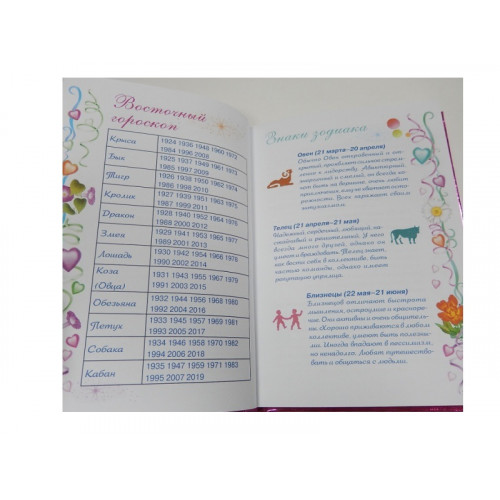 Восточный
гороскоп
Крыса
1924 1936 1948 1960 1972
1984 1996 2008
Бык
1925 1937 1949 1961 1973
1985 1997 2009
Тигр
1926 1938 1950 1962 1974
1986 1998 2010
Кролик
1927 1939 1951 1963 1975
1987 1999 2011
Дракон
1928 1940 1952 1964 1976
1988 2000 2012
Змея
1929 1941 1953 1965 1977
1989 2001 2013
Лошадь
1930 1942 1954 1966 1978
1990 2002 2014
Коза
(Овца)
1931 1943 1955 1967 1979
1991 2003 2015
Обезьяна
1932 1944 1956 1968 1980
1992 2004 2016
Петух
1933 1945 1957 1969 1981
1993 2005 2017
Собака
1934 1946 1958 1970 1982
1994 2006 2018
Кабан
1935 1947 1959 1971 1983
1995 2007 2019
Знаки зодиака
Овен (21 марта–20 апреля)
Телец (21 апреля–21 мая)
Надежный, серьезный,
и решительный. У него
всегда много друзей, однако он
умеет и враждовать. Телец знает,
как вести себя в коллективе, быть
частью команды, однако имеет
репутацию упрямца.
Близнецы (22 мая–21 июня)
Близнецов отличают быстрота
мышления, остроумие и красноре-
чие. Они активны и очень общитель-
ны. Хорошо приживаются в любом
коллективе, умеют быть полезны-
ми. Иногда впадают в пессимизм,
но ненадолго. Любят путешество-
вать и общаться с людьми.